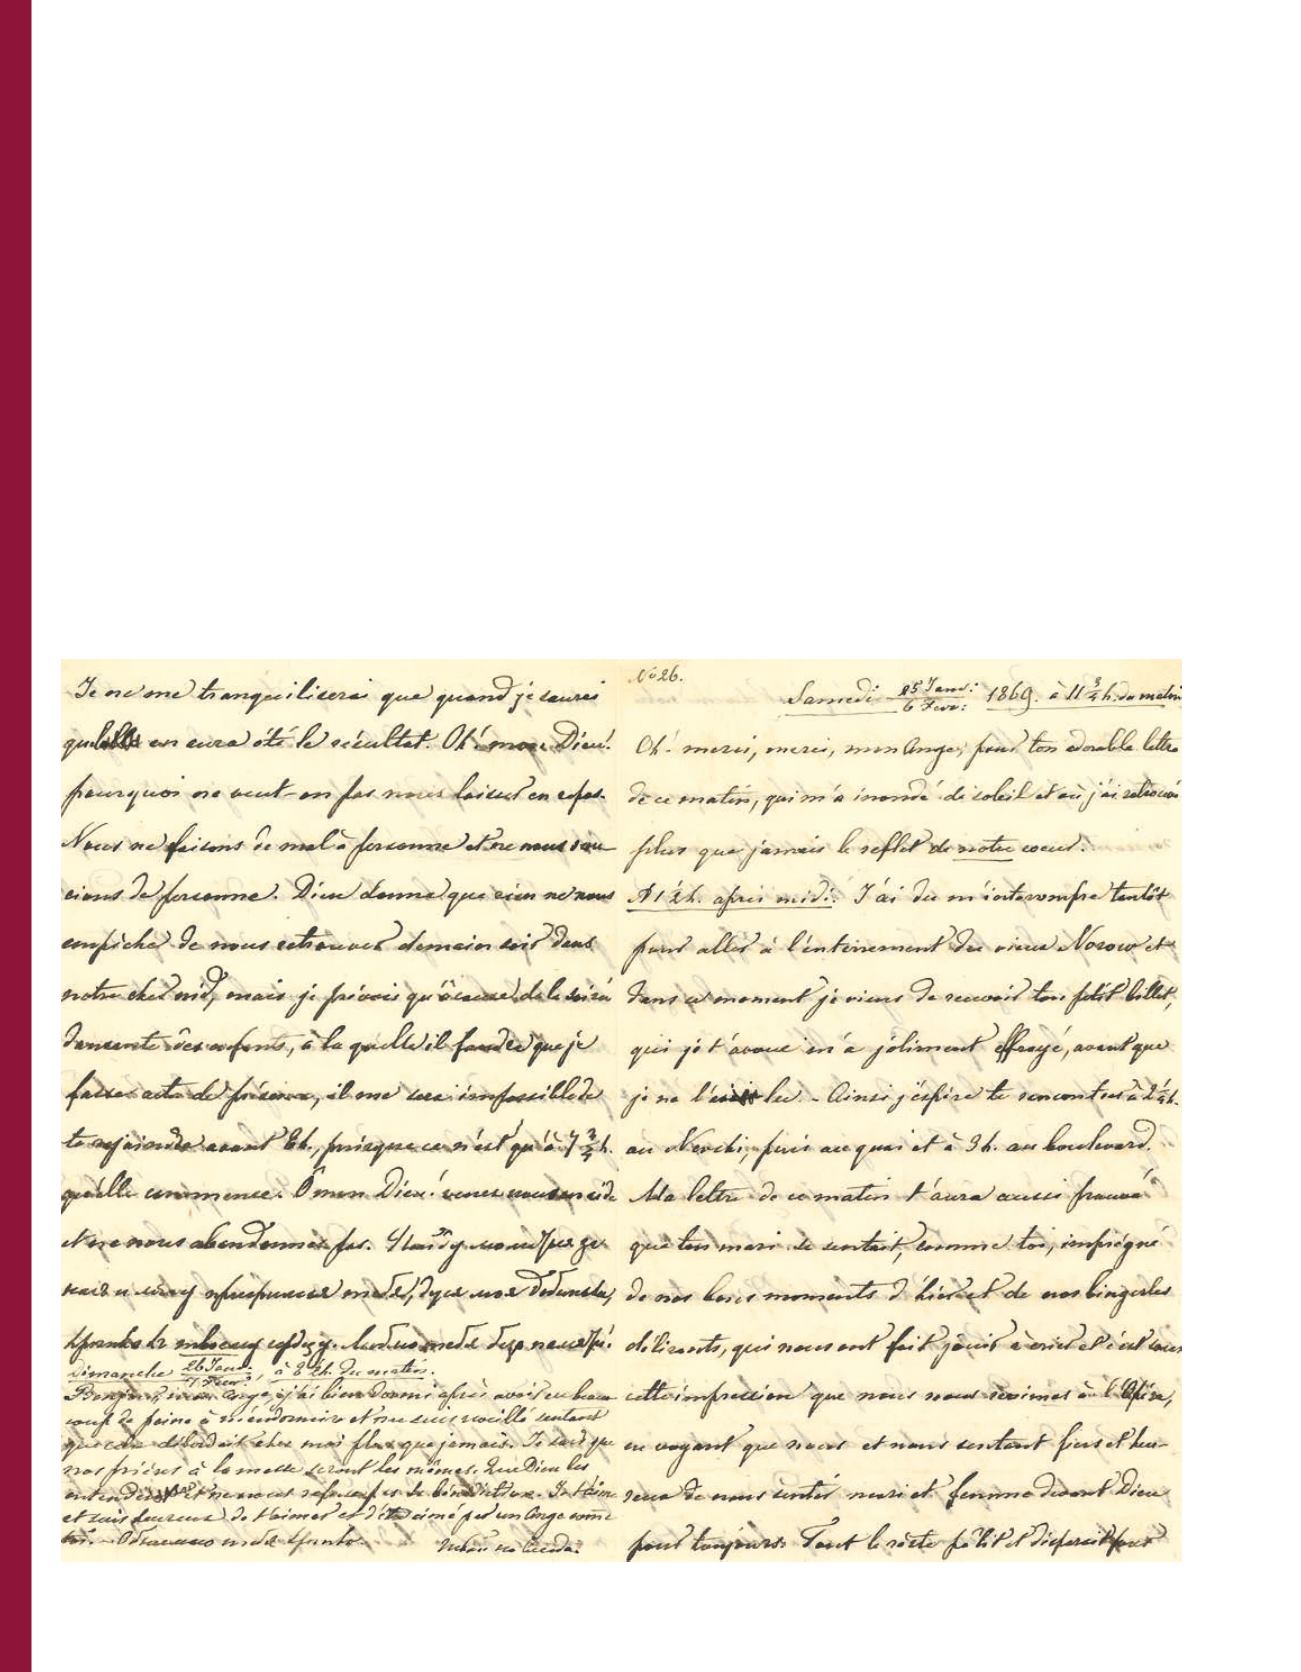 Je ne me tranquiliserai que quand je saurai
en aura été le résultat. Oh! mon Dieu!
pourquoi ne veut-on pas nous laisser en repos.
Nous ne faisons de mal à personne et ne nous sou-
cions de personne. Dieu donne que rien ne nous
empêche de nous retrouver demain soir dans
notre cher nid, mais je prévois qu'à cause de la soirée
dansante des enfants, à la quelle il faudra que je
fasse acte de présence, il me sera impossible de
te rejoindre avant 8h., puisque ce n'est qu'à 7 3/4 h.
qu'elle commence. Ô mon Dieu! venez nous en aide
et ne nous abandonnez pas.
Dimanche 26 Janv: / 7 Févr:, à h. du matin.
Bonjour, mon ange, j'ai bien dormi après avoir eu beau-
coup de peine à m'endormir et me suis réveillé sentant
que cela débordait chez moi plus que jamais. Je sais que
nos prières à la messe seront les mêmes. Que Dieu les
entende et ne nous refuse pas sa bénédiction. Je t'aime
et suis heureux de t'aimer et d'être aimé par un Ange comme
toi.
No 26.
Samedi 25 Janv: / 6 Févr: 1869. à 11 3/4 h. du matin
Oh! merci, merci, mon Ange, pour ton adorable lettre
de ce matin, qui m'a inondé de soleil et où j'ai retrouvé
plus que jamais le reflet de notre coeur.
A 1 1/2 h. après midi. J'ai du m'interrompre tantôt
pour aller à l'enterrement du vieux Norow et
dans ce moment je viens de recevoir ton petit billet,
qui je t'avoue m'a joliment effrayé, avant que
je ne l'eus lu. – Ainsi j'espère te rencontrer à 2 1/4 h.
au Nevski, puis au quai et à 3 h. au boulevard.
Ma lettre de ce matin t'aura aussi prouvé
que ton mari se sentait, comme toi, imprégné
de nos bons moments d'hier et de nos bingerles
délirants, qui nous ont fait jouir à crier et c'est sous
cette impression que nous nous revimes à l'Opéra,
en voyant que nous et nous sentant fiers et heu-
reux de nous sentir mari et femme devant Dieu
pour toujours. Tout le reste pâlit et disparait pour